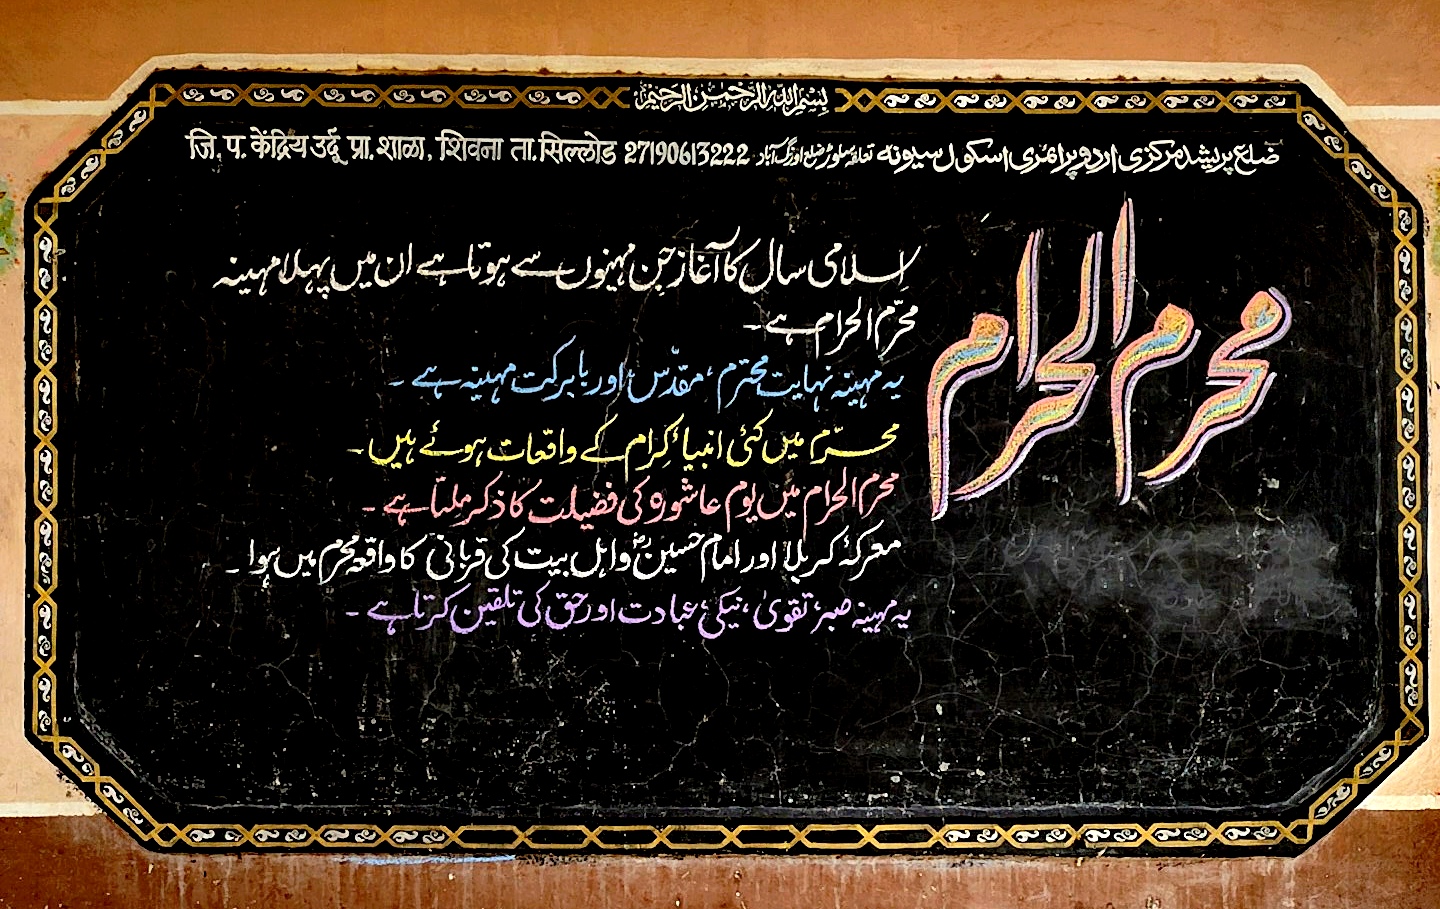 بِسْمِ اللهِ الرَّحْمٰنِ الرَّحِيْمِ
जि. प. केंद्रिय उर्दू प्रा. शाळा, शिवना ता. सिल्लोड 27190613222 ضلع پریشد مرکزی اردو پرائمری اسکول سیونہ تعلقہ سلوڑ ضلع اورنگ آباد
محرم الحرام
اِسلامی سال کا آغاز جن مہینوں سے ہوتا ہے ان میں پہلا مہینہ
محرّم الحرام ہے۔
یہ مہینہ نہایت محترم، مقدّس، اور بابرکت مہینہ ہے۔
محرّم میں کئی انبیاءِ کِرام کے واقعات ہوئے ہیں۔
محرم الحرام میں یومِ عاشورہ کی فضیلت کا ذکر ملتا ہے۔
معرکۂ کربلا اور امام حسینؓ و اہلِ بیت کی قربانی کا واقعہ محرم میں ہوا۔
یہ مہینہ صبر، تقویٰ، نیکی، عبادت اور حق کی تلقین کرتا ہے۔